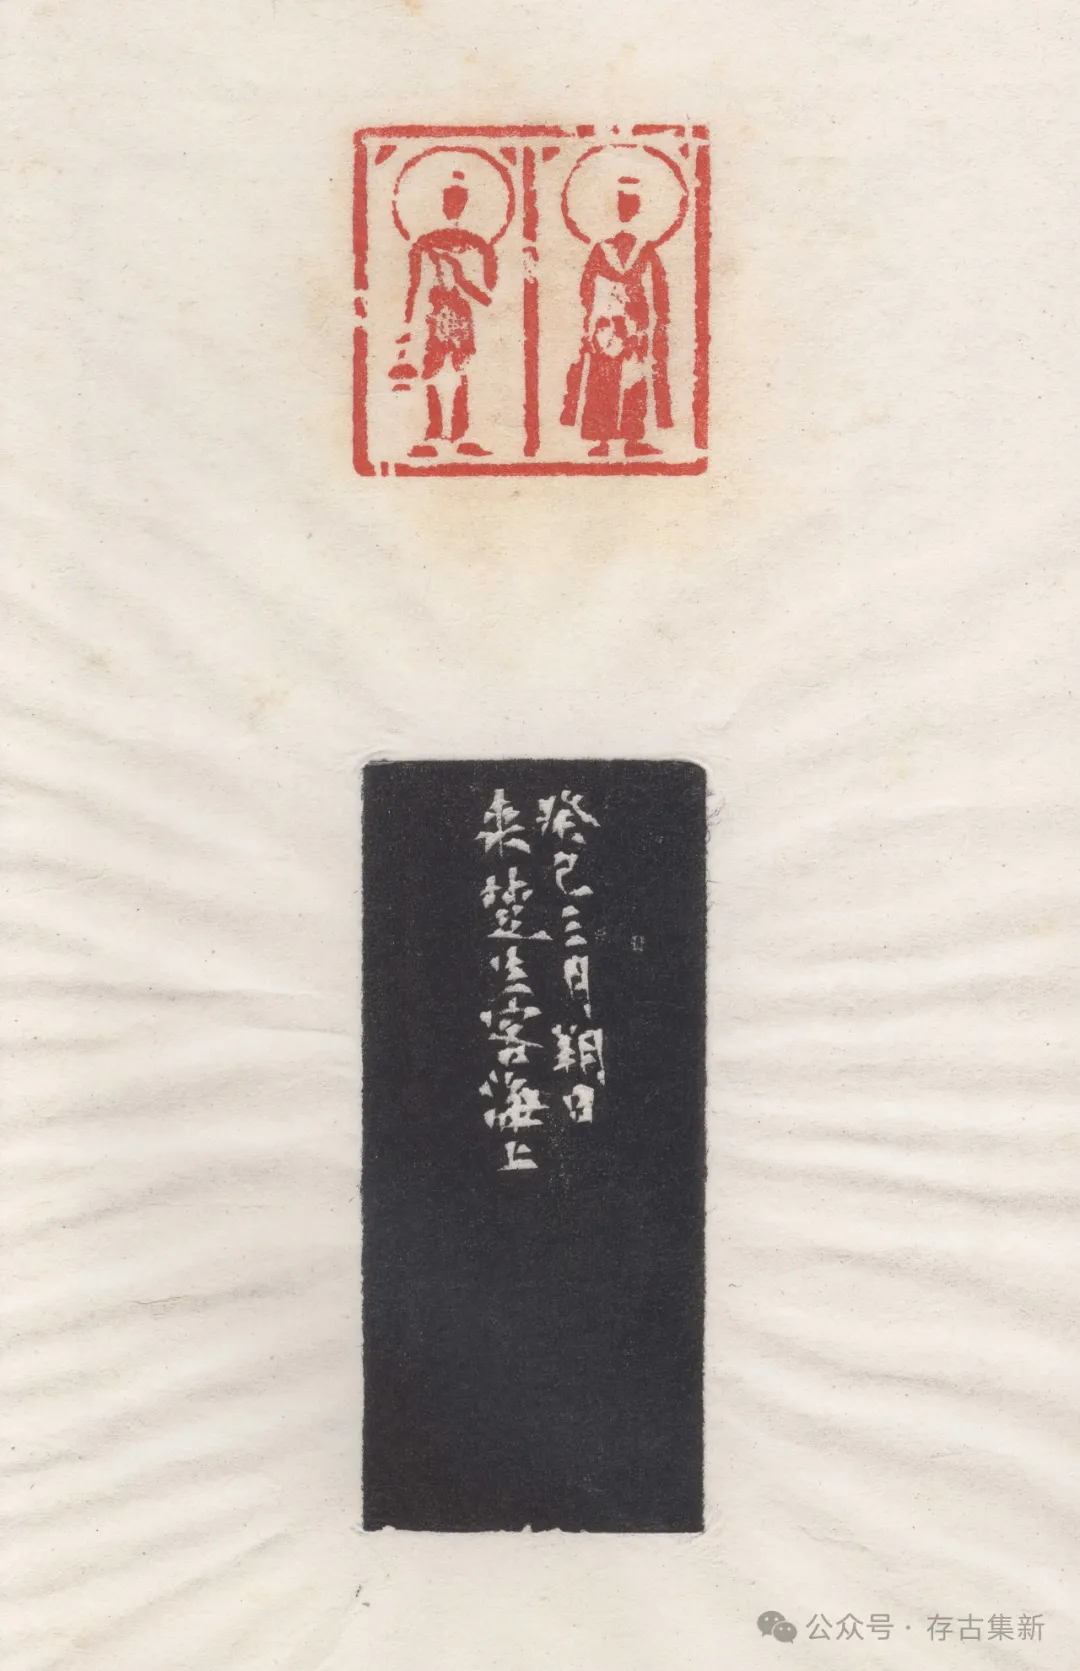 癸巳三月朔日
来楚生客海上
公众号 · 存古集新